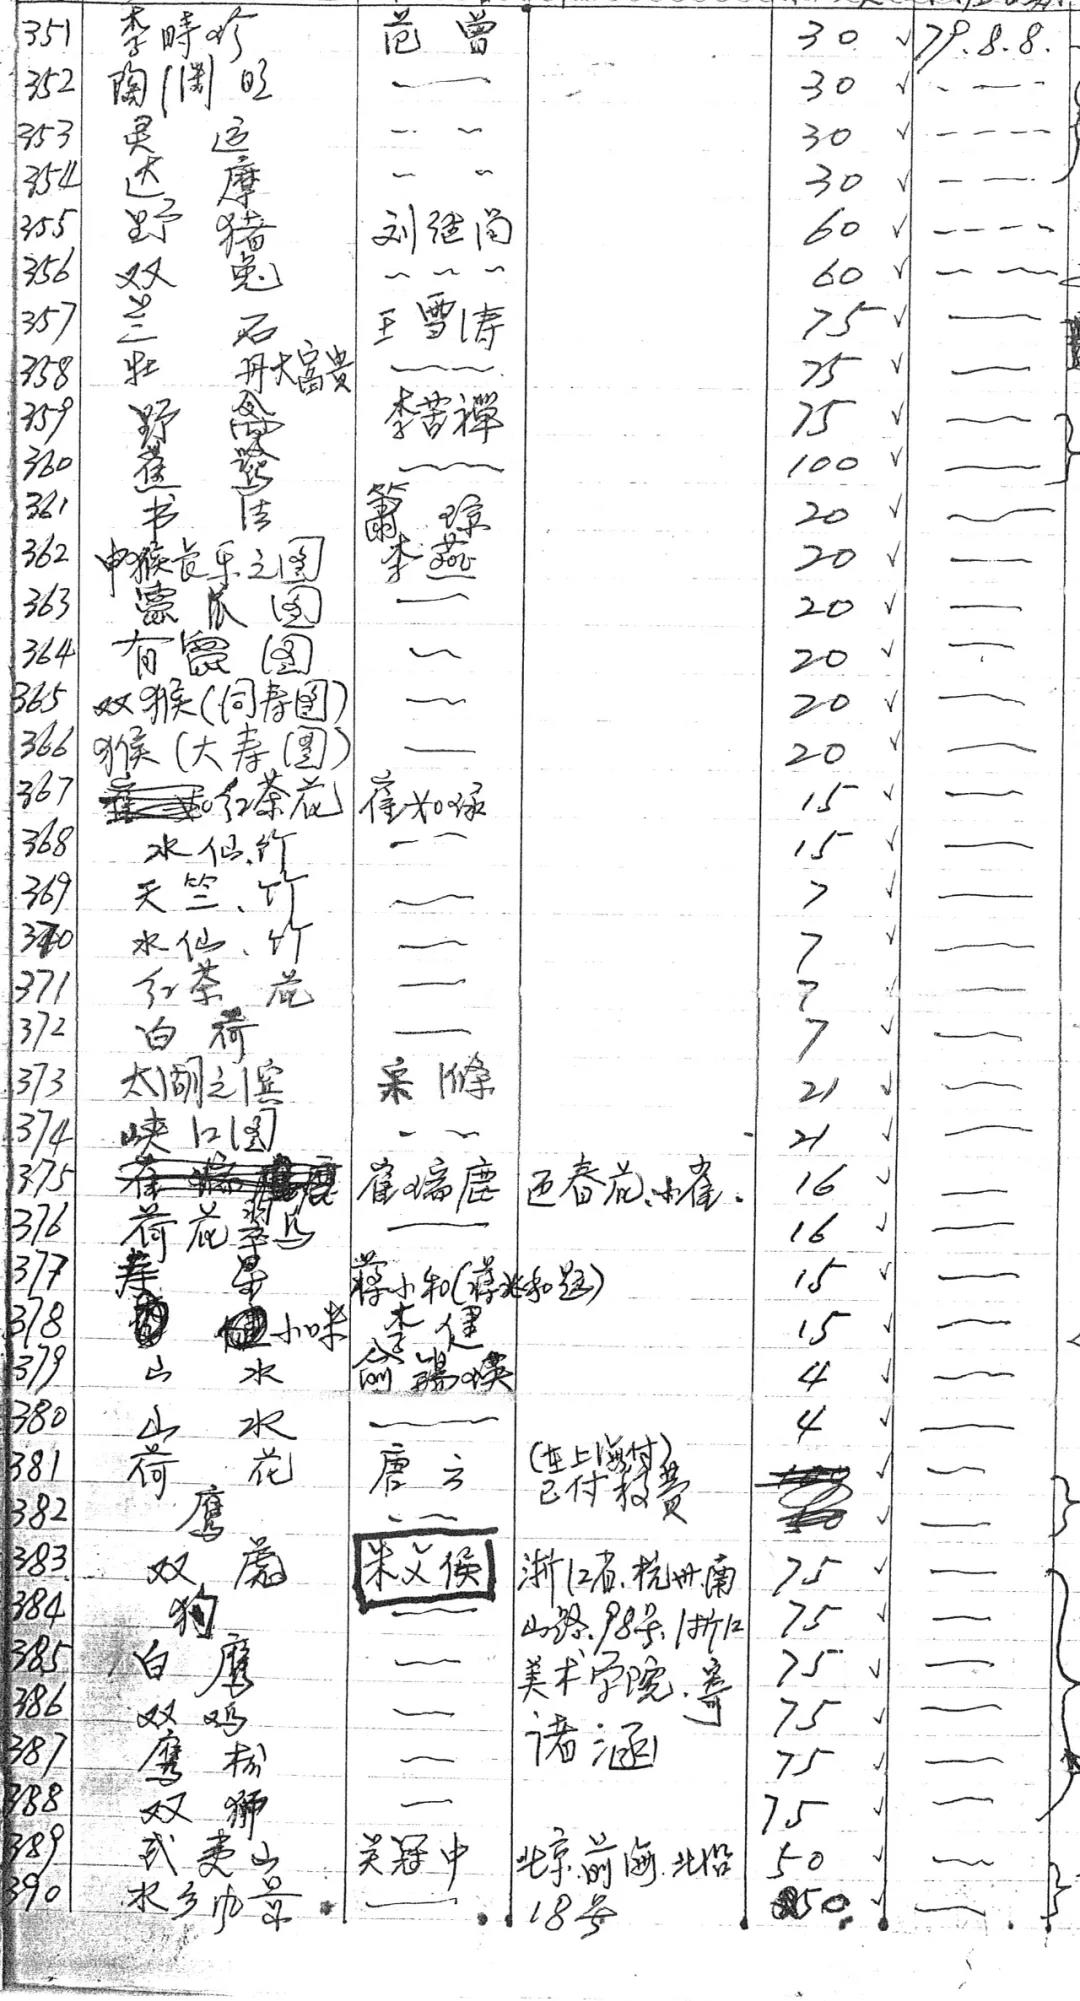 351 李時珍 范曾 30 ✓ 79.8.8.
352 陶渊明 —— 30 ✓ - — — —
353 灵运 - ~ 30 ✓ - - - -
354 达摩 ~ ~ 30 ✓ - — —
355 野猪 刘继卣 60 ✓ - - - -
356 双兔 ~ ~ ~ 60 ✓ — — —
357 兰石 王雪涛 75 ✓ ——
358 牡丹大富贵 —— 75 ✓ ——
359 野 李苦禪 75 ✓ ——
360 蕉 —— 100 ✓ ——
361 书法 萧琼 20 ✓ ——
362 申猴长乐之图 李燕 20 ✓ ——
363 图 —— 20 ✓ ——
364 有 图 —— 20 ✓ ——
365 双猴(同寿图) —— 20 ✓ ——
366 猴(大寿图) —— 20 ✓ ——
367 红茶花 崔如琢 15 ✓ ——
368 水仙.竹 —— 15 ✓ ——
369 天竺、竹 —— 7 ✓ ——
370 水仙、竹 —— 7 ✓ ——
371 红茶花 —— 7 ✓ ——
372 白荷 —— 7 ✓ ——
373 太湖之滨 宋滌 21 ✓ ——
374 峡江图 - ~ 21 ✓ ——
375 崔瑞鹿 崔瑞鹿 迎春花、小雀. 16 ✓ ——
376 荷花翠鸟 —— 16 ✓ ——
377 寿星 蒋小和(蒋兆和题) 15 ✓ ——
378 小咪 李健 15 ✓ ——
379 山水 俞 4 ✓ ——
380 山水 —— 4 ✓ ——
381 荷花 唐云 (在上海付) ✓ ——
已付 费
382 鹰 —— ✓ ——
383. 双 朱文侯 浙江省.杭州.南 75 ✓ ——
384 狗 —— 山路.98号.浙江 75 ✓ ——
385 白鹰 —— 美术学院.寄 75 ✓ ——
386 双鸡 —— 诸涵 75 ✓ ——
387 鹰松 —— 75 ✓ ——
388 双狮 —— 75 ✓ ——
389 武夷山 吴冠中 北京.前海.北沿 50 ✓ ——
390 水乡小景 —— 18号 50. ✓ ——